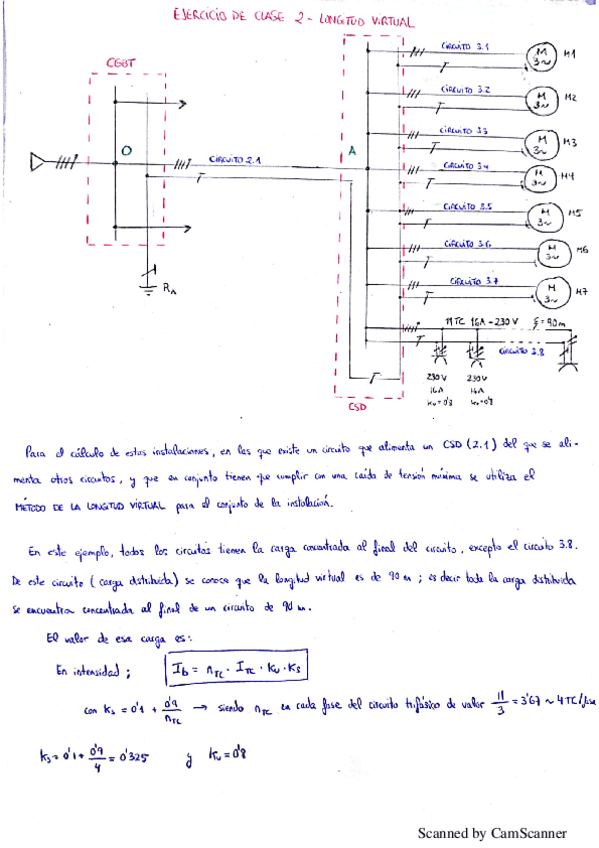 EJERCICIO DE CLASE 2 - LONGITUD VIRTUAL
CGBT
O
CIRCUITO 2.1
RA
A
CIRCUITO 3.1
M 3~
M1
CIRCUITO 3.2
M 3~
M2
CIRCUITO 3.3
M 3~
M3
CIRCUITO 3.4
M 3~
M4
CIRCUITO 3.5
M 3~
M5
CIRCUITO 3.6
M 3~
M6
CIRCUITO 3.7
M 3~
M7
11 TC 16A - 230V = 90m
CIRCUITO 3.8
230V 230V
16A 16A
ku=0'8 ku=0'8
CSD
Para el cálculo de estas instalaciones, en las que existe un circuito que alimenta un CSD (2.1) del que se ali-
menta otros circuitos, y que en conjunto tienen que cumplir con una caída de tensión mínima se utiliza el
MÉTODO DE LA LONGITUD VIRTUAL para el conjunto de la instalación.
En este ejemplo, todos los circuitos tienen la carga concentrada al final del circuito, excepto el circuito 3.8.
De este circuito (carga distribuida) se conoce que la longitud virtual es de 90 m; es decir toda la carga distribuida
se encuentra concentrada al final de un circuito de 90 m.
El valor de esa carga es:
En intensidad; Ib = nTC · ITC · Ku · Ks
con Ks = 0'1 + 0'9/nTC → siendo nTC en cada fase del circuito trifásico de valor 11/3 = 3'67 ~ 4 TC/fase
Ks = 0'1 + 0'9/4 = 0'325 y Ku = 0'8
Scanned by CamScanner